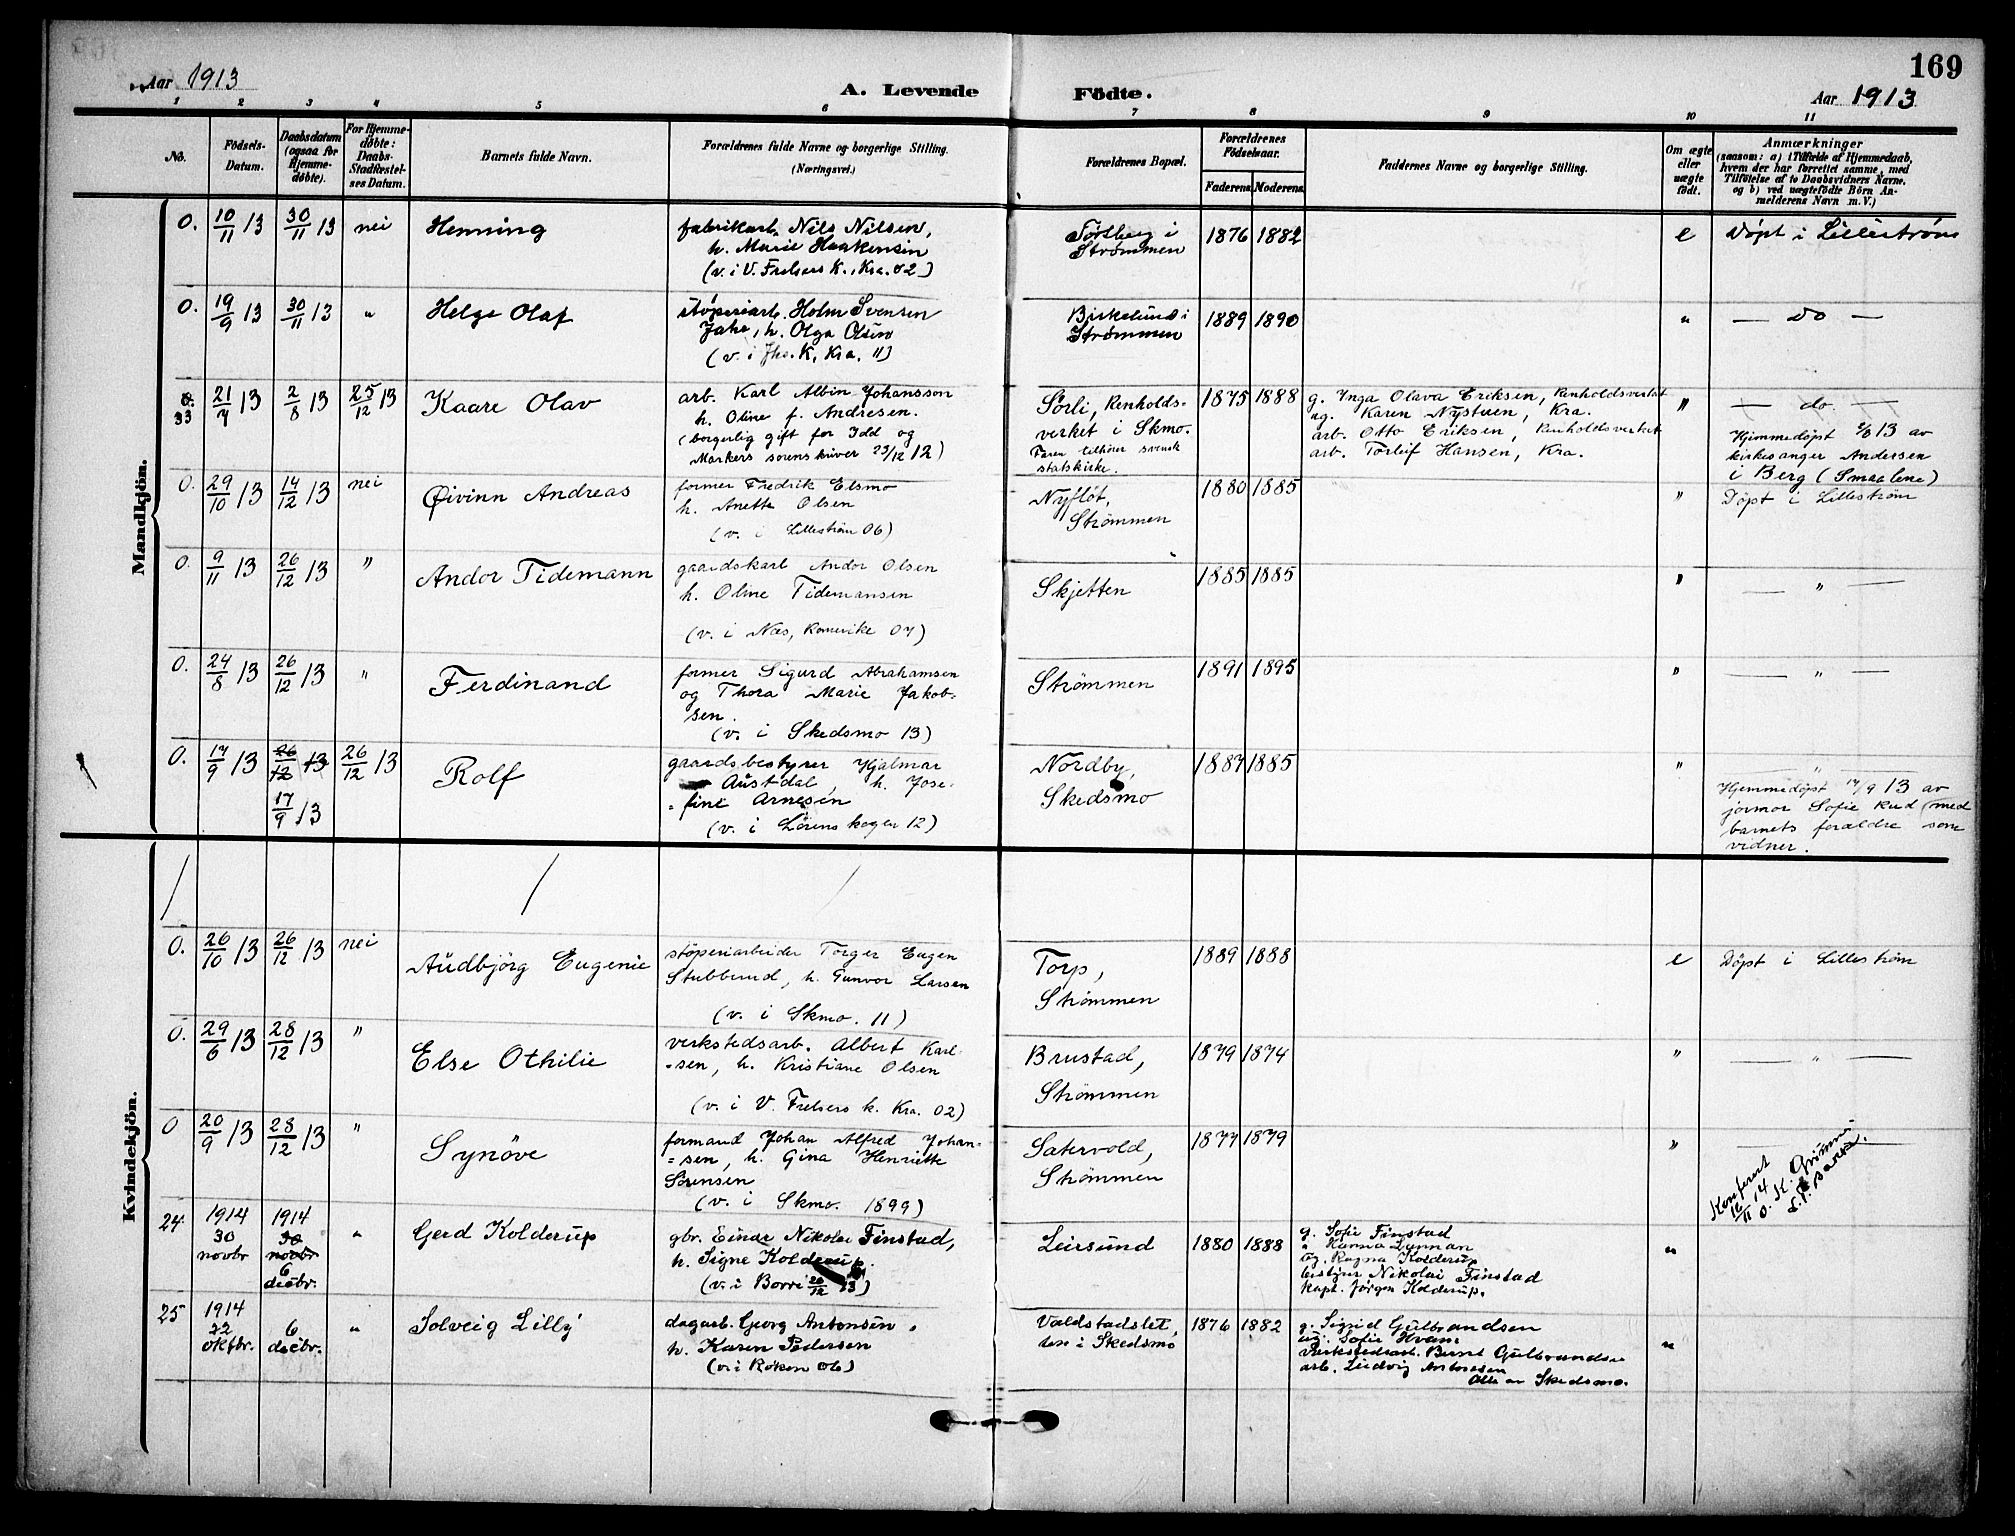 169
Aar 1913
A. Levende Födte.
Aar 1913
1 2 3 4 5 6 7 8 9 10 11
No.
Födsels-Datum.
Daabsdatum (ogsaa for Hjemmedöbte).
For Hjemmedöbte: Daabs-Stadfæstelses Datum.
Barnets fulde Navn.
Forældrenes fulde Navne og borgerlige Stilling.
(Næringsvei.)
Forældrenes Bopæl.
Forældrenes Födselsaar.
Faderens. Moderens.
Faddernes Navne og borgerlige Stilling.
Om ægte eller uægte födt.
Anmærkninger
(saasom: a) i Tilfælde af Hjemmedaab, hvem der har forrettet samme, med Tilföielse af to Daabsvidners Navne, og b) ved uægtefödte Börn Anmelderens Navn m. V.)
Mandkjön.
0. 10/11 13 30/11 13 nei Henning
fabrikarb. Nils Nilsen,
h. Marie Haakensen
(v. i V. Frelsers K., Kra. 02)
Strømmen
1876 1882 e Døpt i Lillestrøm
0. 19/9 13 30/11 13 " Helge Olaf
støperiarb. Holm Svensen
Jahr, h. Olga Olsen
(v. i Jhs. K, Kra. 11)
Birkelund i
Strømmen
1889 1890 " — do —
0.
33 21/7 13 2/8 13 25/12 13 Kaare Olav
arb. Karl Albin Johansson
h. Oline f. Andresen.
(borgerlig gift for Idd og
Markers sorenskriver 23/12 12)
Sørli, Renholds-
verket i Skmo.
Faren tilhører svensk
statskirke.
1875 1888
g. Inga Olava Eriksen, Renholdsverket
ug. Karen Nystuen, Kra.
arb. Otto Eriksen, Renholdsverket
arb. Torleif Hansen, Kra.
" — do. —
Hjemmedöpt 2/8 13 av
kirkesanger Andersen
i Berg (Smaalene)
0. 29/10 13 14/12 13 nei Øivinn Andreas
former Fredrik Elsmo
h. Anette Olsen
(v. i Lillestrøm 06)
Nyfløt,
Strömmen
1880 1885 " Döpt i Lilleström
0. 9/11 13 26/12 13 " Andor Tidemann
gaardskarl Andor Olsen
h. Oline Tidemansen
(v. i Næs, Romerike 07)
Skjetten
1885 1885 " — " —
0. 24/8 13 26/12 13 " Ferdinand
former Sigurd Abrahamsen
og Thora Marie Jakob-
sen.
(v. i Skedsmo 13)
Strömmen
1891 1895 " — " —
0. 17/9 13 26/12 13 26/12 13 Rolf
17/9 13
gaardsbestyrer Hjalmar
Austdal, h. Jose-
=fine Arnesen
(v. i Lørenskogen 12)
Nordby,
Skedsmo
1887 1885 " — " —
Hjemmedöpt 17/9 13 av
jormor Sofie Rud (med
barnets forældre som
vidner.
Kvindekjön.
0. 26/10 13 26/12 13 nei Audbjörg Eugenie
stöperiarbeider Torger Eugen
Stubberud, h. Gunvor Larsen
(v. i Skmo. 11)
Torp,
Strömmen
1889 1888 e Döpt i Lilleström
0. 29/6 13 28/12 13 " Else Othilie
verkstedsarb. Albert Karl-
=sen, h. Kristiane Olsen
(v. i V. Frelsers k. Kra. 02)
Brustad,
Strömmen
1879 1874 " — " —
0 20/9 13 28/12 13 " Synöve
formand Johan Alfred Johan-
=sen, h. Gina Henriette
Sörensen
(v. i Skmo. 1899)
Satervold,
Strömmen
1877 1879 " —
Konfermt
16/11 14
24. 1914
30
novbr 1914
30
novbr.
6
decbr. " Gerd Kolderup
gbr. Einar Nikolai Finstad,
h. Signe Kolderup.
(v. i Borre 26/12 13)
Leirsund
1880 1888
g. Sofie Finstad
ug. Ragna Kolderup
bestyrer Nikolai Finstad
kapt. Jørgen Kolderup.
"
25 1914
22
oktbr. 6
decbr. " Solveig Lilly
dagarb. Georg Antonsen,
h. Karen Pedersen
(v. i Røken 06)
Vældstadslet,
ten i Skedsmo
1876 1882
g. Sigrid Gulbrandsen
ug. Sofie Hvam
Verkstedsarb. Bernt Gulbrandsen
arb. Ludvig Antonsen
Alle av Skedsmo.
"